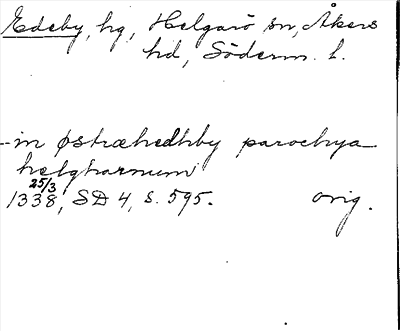 Edeby, hg, Helgarö sn, Åkers
hd, Söderm. l.
-- in østræhedhby parochya
helgharnum
25/3
1338, SD 4, s. 595. orig.